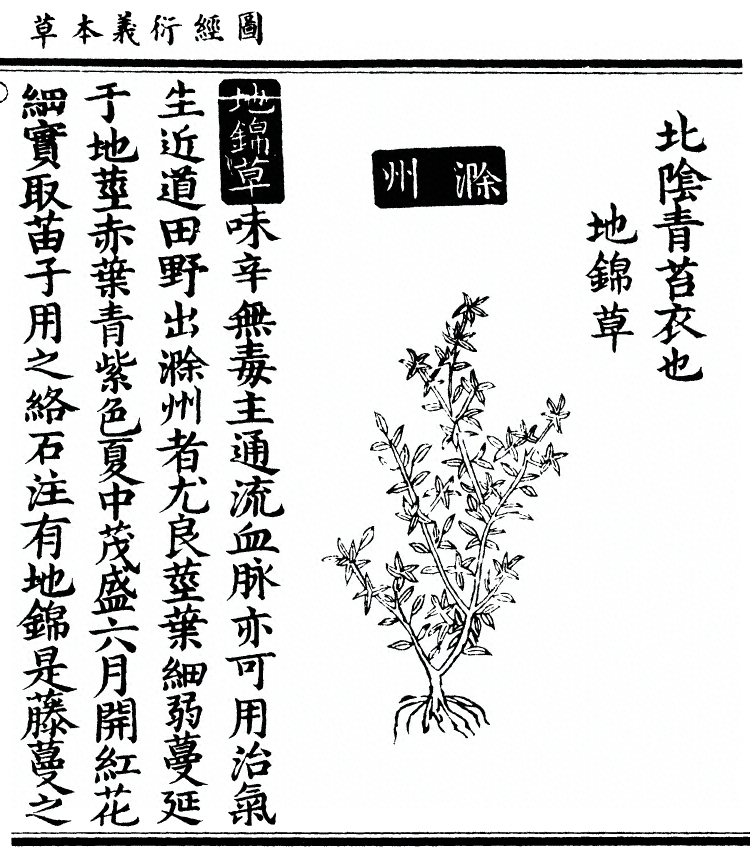 圖經衍義本草
北陰青苔衣也
地錦草
滁州
地錦草味辛無毒主通流血脉亦可用治氣
生近道田野出滁州者尤良莖葉細弱蔓延
于地莖赤葉青紫色夏中茂盛六月開紅花
細實取苗子用之絡石注有地錦是藤蔓之